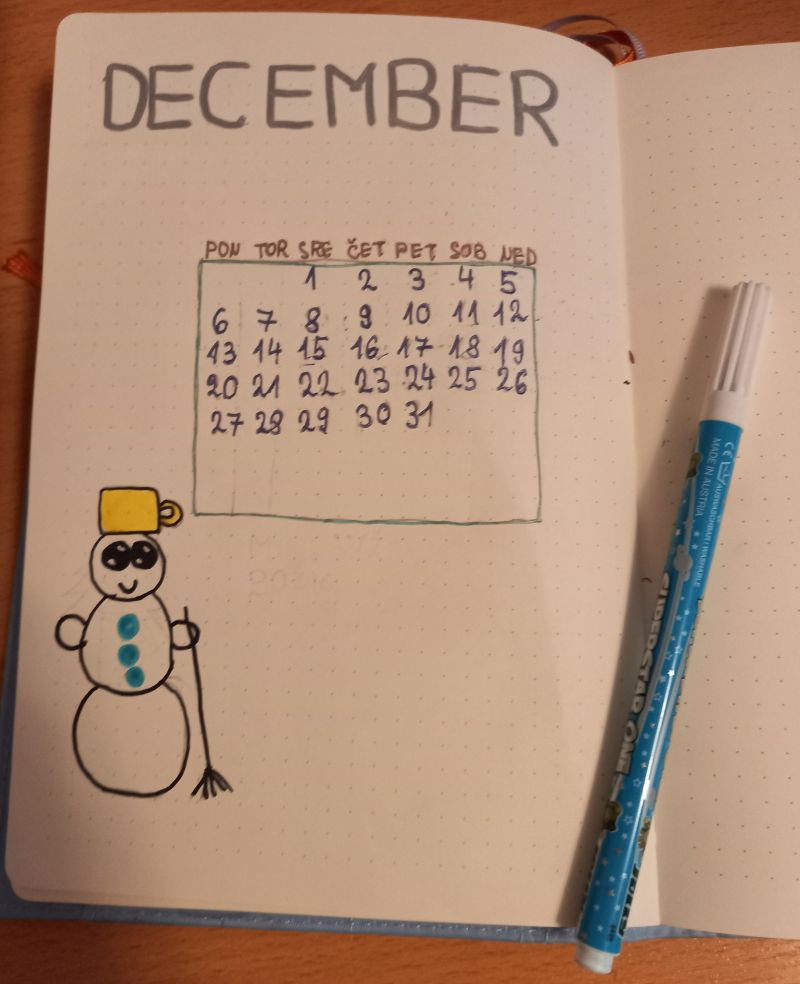 DECEMBER
PON TOR SRE ČET PET SOB NED
1 2 3 4 5
6 7 8 9 10 11 12
13 14 15 16 17 18 19
20 21 22 23 24 25 26
27 28 29 30 31
CE
MADE IN AUSTRIA
SUPERSTAR ONE